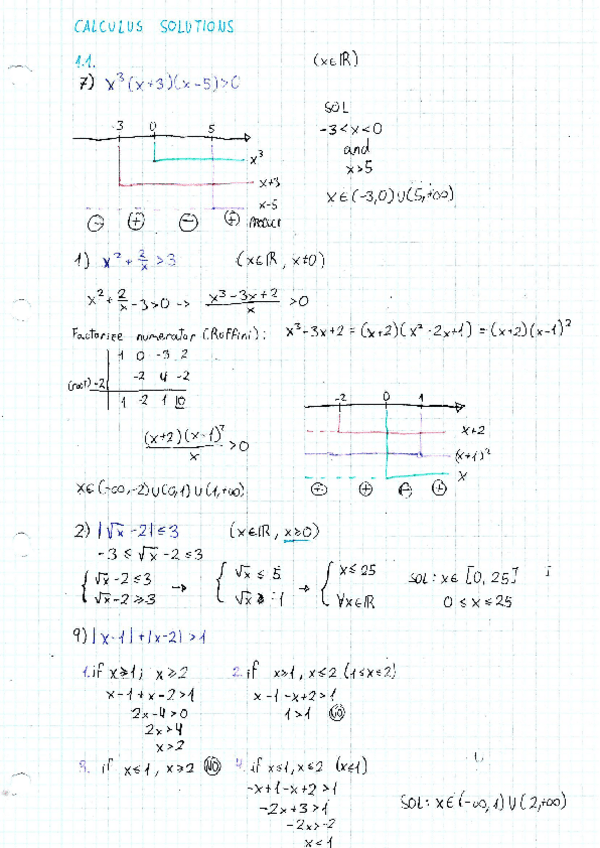 CALCULUS SOLUTIONS
1.1.
(x∈ℝ)
7) x³(x+3)(x-5)>0
SOL
-3<x<0
and
x>5
x∈(-3,0)∪(5,+∞)
-3 0 5
x³
x+3
x-5
⊖ ⊕ ⊖ ⊕ PRODUCT
1) x² + 2/x > 3 (x∈ℝ, x≠0)
x² + 2/x - 3>0 -> (x³-3x+2)/x >0
Factorize numerator (Ruffini): x³-3x+2 = (x+2)(x²-2x+1) = (x+2)(x-1)²
1 0 -3 2
(root) -2 -2 4 -2
1 -2 1 |0
(x+2)(x-1)²/x >0
x∈(-∞,-2)∪(0,1)∪(1,+∞)
-2 0 1
x+2
(x+1)²
x
⊕ ⊕ ⊖ ⊕
2) |√x -2|≤3 (x∈ℝ, x≥0)
-3 ≤ √x -2 ≤3
{ √x -2 ≤3 → { √x ≤ 5 → { x≤25 SOL: x∈ [0, 25]
√x -2 ≥3 √x ≥ -1 ∀x∈ℝ 0 ≤ x ≤25
9) |x-1|+|x-2|>1
1. if x≥1; x≥2
x-1+x-2>1
2x-4>0
2x>4
x>2
2. if x>1, x≤2 (1≤x≤2)
x-1-x+2>1
1>1 NO
3. if x≤1, x≥2 NO
4. if x≤1, x≤2 (x≤1)
-x+1-x+2>1
-2x+3>1
-2x>-2
x<1
SOL: x∈(-∞,1)∪(2,+∞)